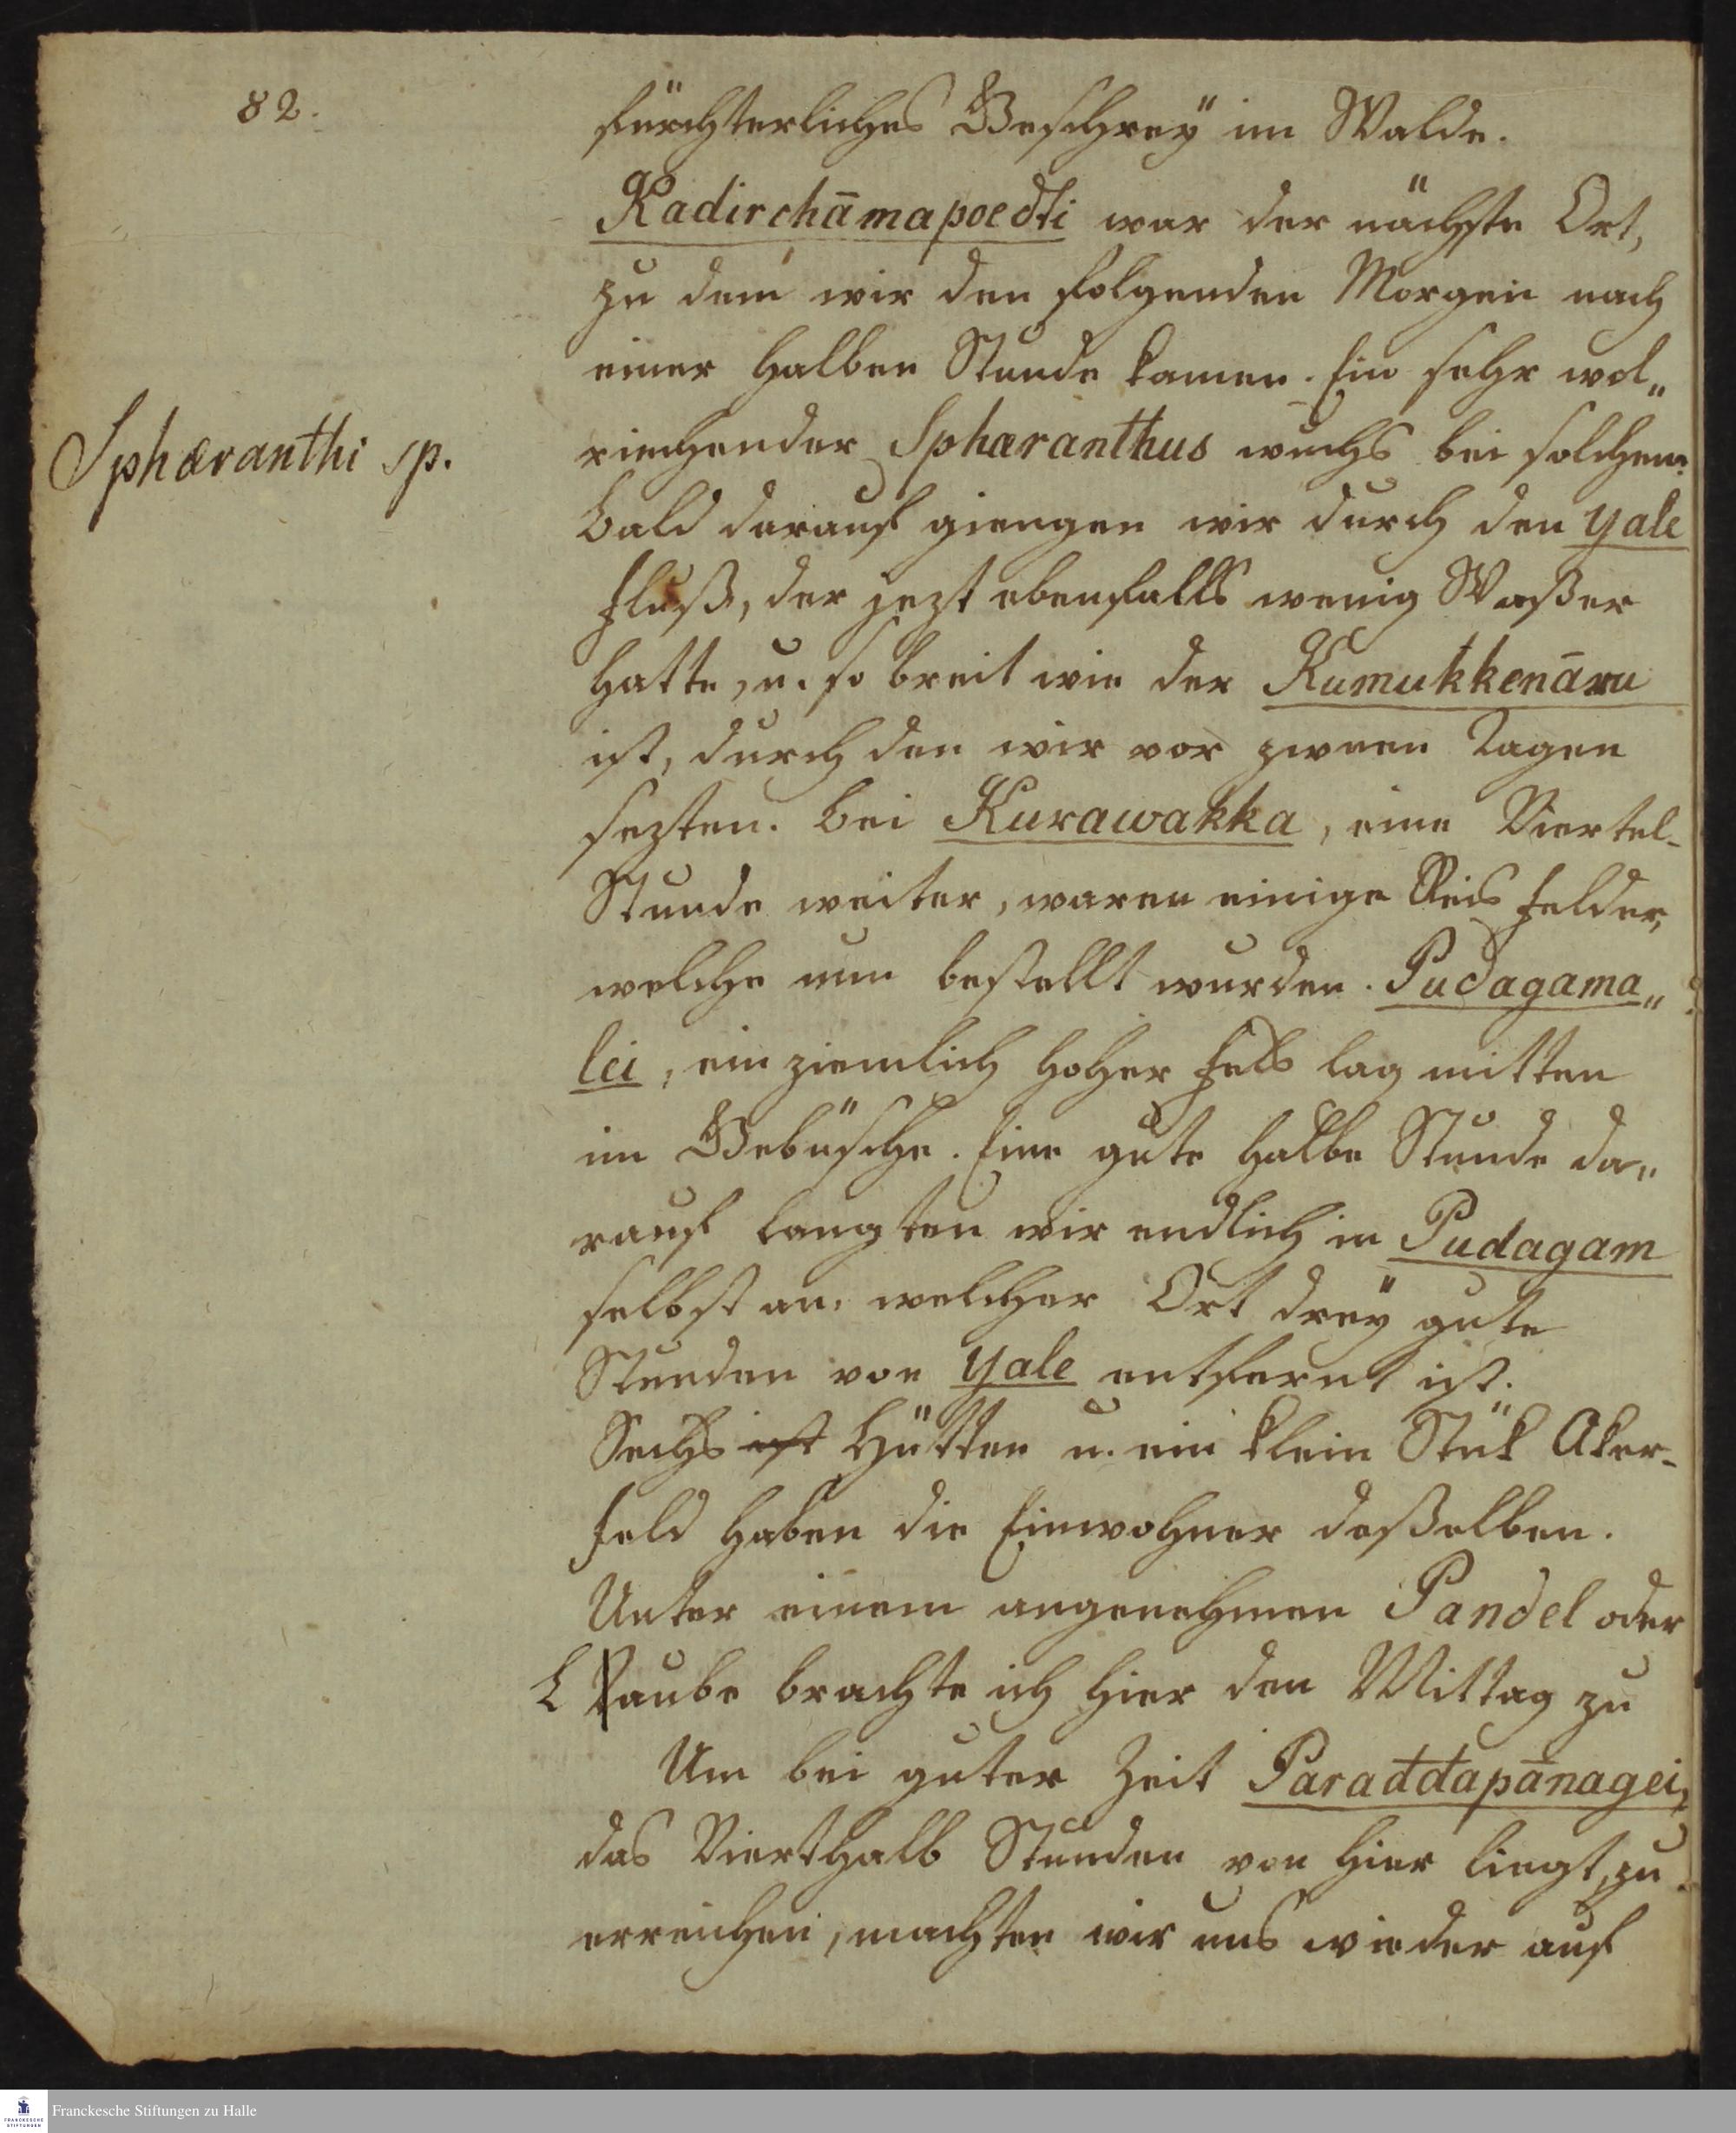 82.
fürchterliches Geschrey im Walde.
Kadirchāmapoedti war der nächste Ort,
zu dem wir den folgenden Morgen nach
einer halben Stunde kamen. Ein sehr wol„
Sphæranthi sp.
riechender Sphæranthus wuchs bei solchem.
Bald darauf giengen wir durch den Yale
Fluß, der jezt ebenfalls wenig Waßer
hatte, u. so breit wie der Kumukkenāru
ist, durch den wir vor zween Tagen
sezten. Bei Kurawakka, eine Viertel-
Stunde weiter, waren einige Reis Felder,
welche nun bestellt wurden. Pudagama„
lei, ein ziemlich hoher Fels lag mitten
im Gebüsche. Eine gute halbe Stunde da„
rauf langten wir endlich in Pudagam
selbst an, welcher Ort drey gute
Stunden von Yale entfernt ist.
Sechs ist Hütten u. ein klein Stük Aker-
feld haben die Einwohner deßelben.
Unter einem angenehmen Pandel oder
Laube brachte ich hier den Mittag zu
Um bei guter Zeit Paraddapānagei,
das Vierthalb Stunden von hier liegt, zu
erreichen, machten wir uns wieder auf
Franckesche Stiftungen zu Halle
FRANCKESCHE
STIFTUNGEN